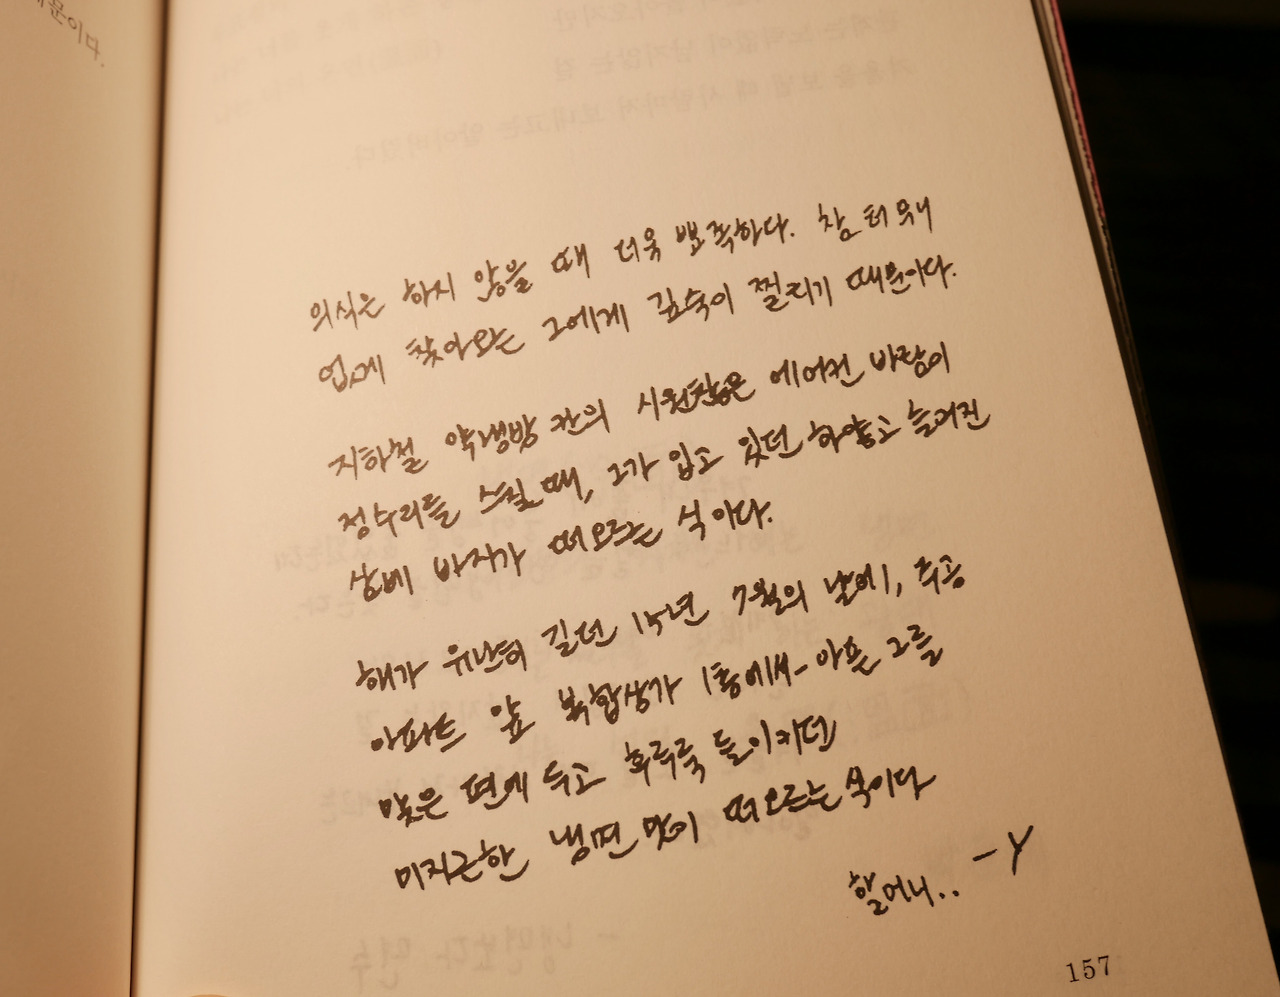 때문이다.
의식은 하지 않을 때 더욱 뾰족하다. 참 터무니
없게 찾아오는 그에게 깊숙이 찔리기 때문이다.
지하철 약냉방 칸의 시원찮은 에어컨 바람이
정수리를 스칠 때, 그가 입고 있던 하얗고 늘어진
삼베 바지가 떠오르는 식이다.
해가 유난히 길던 15년 7월의 날에, 주공
아파트 앞 복합상가 1층에서 아흔 그를
맞은 편에 두고 후루룩 들이키던
미지근한 냉면 맛이 떠오르는 식이다
할머니.. - Y
157